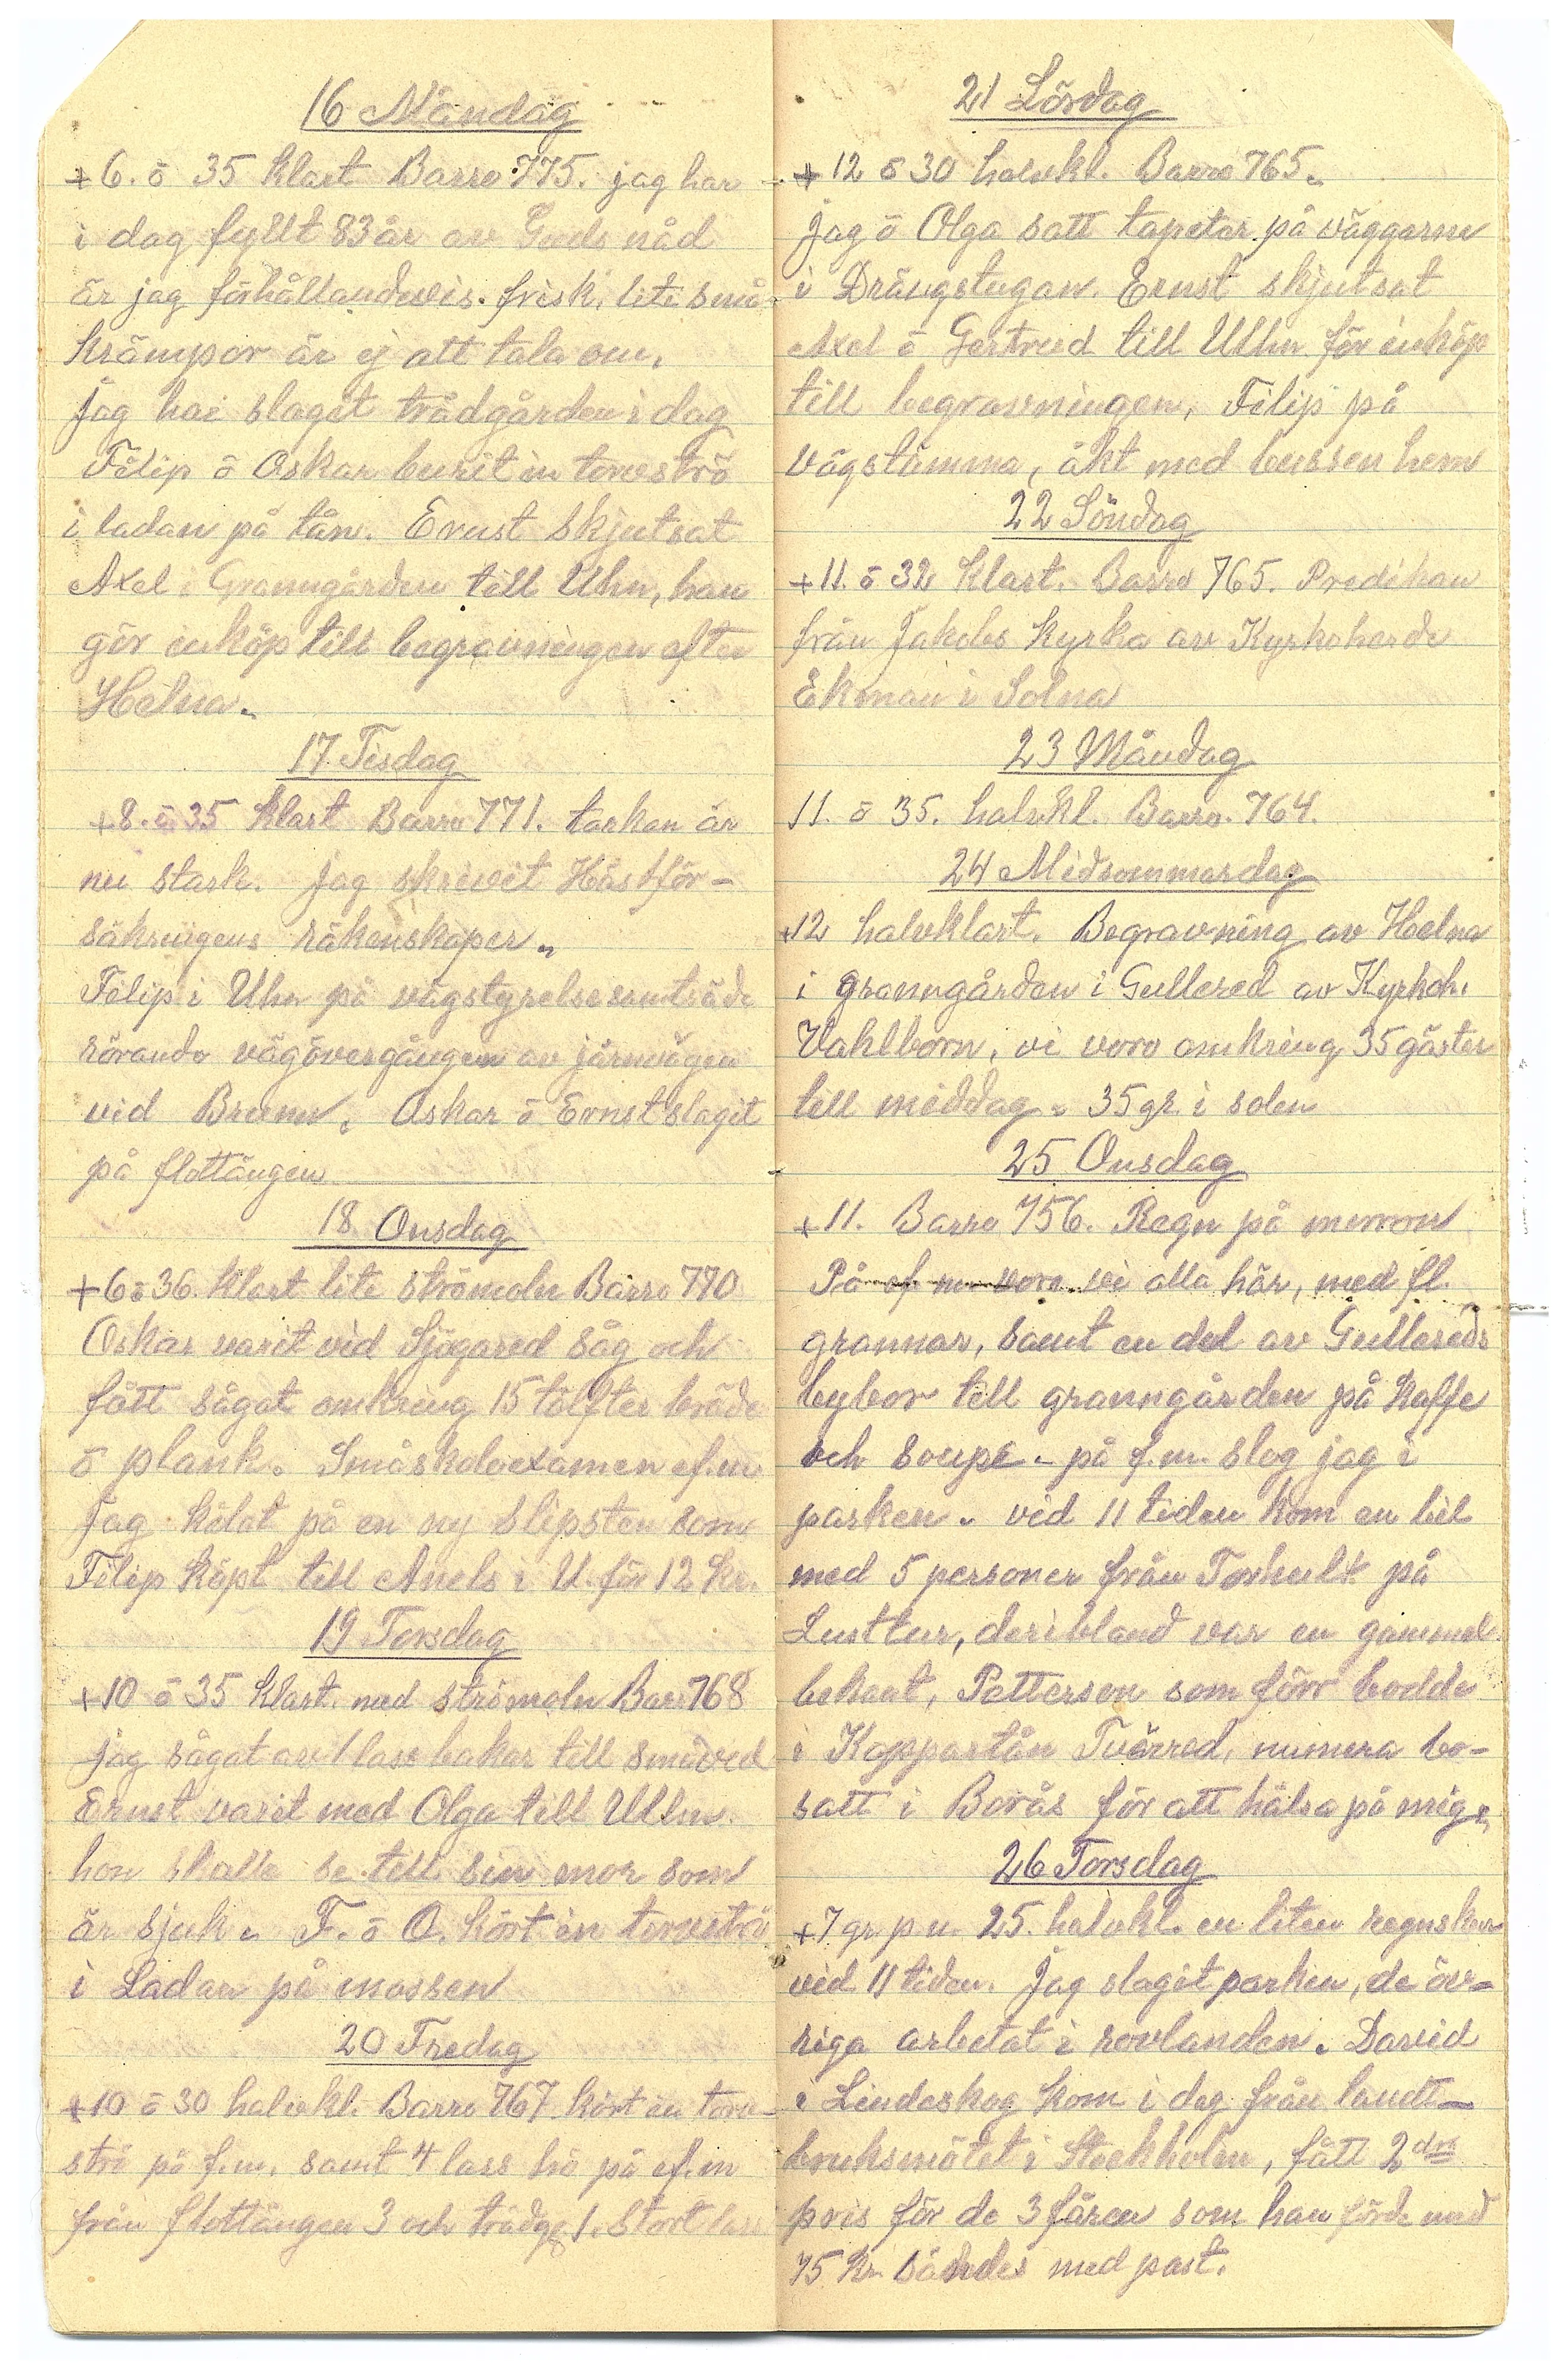 16 Måndag
+6. ö 35 klart Barro 775. jag har
i dag fyllt 83 år av Guds nåd
är jag förhållandevis. frisk, lite små-
krämpor är ej att tala om.
Jag har slaget trädgården i dag
Filip ö Oskar burit in torvströ
i ladan på tån. Ernst skjutsat
Axel i Granngården till Uhn, han
gör inköp till begravningen efter
Helna.
17 Tisdag
+8. ö 35 klart Barro 771. torkan är
nu stark. Jag skrivit Hästför-
säkringens räkenskaper.
Filip i Uhn på vägstyrelsesamträde
rörande vägövergången av järnvägen
vid Brunn. Oskar ö Ernst slagit
på flottängen
18 Onsdag
+6 ö 36. klart lite strömoln Barro 770
Oskar varit vid Sjögared såg och
fått sågat omkring 15 tolfter bräde
ö plank. Småskoleexamen ef.m
Jag hålat på en ny slipsten som
Filip köpt till Anels i U. för 12 kr.
19 Torsdag
+10 ö 35 klart. med strömoln Baro 768
jag sågat av 1 lass bakar till småved
Ernst varit med Olga till Ulhn.
hon skalle se till sin mor som
är sjuk. F. ö O. kört in torvströ
i Ladan på mossen
20 Fredag
+10 ö 30 halvkl. Barro 767 kört in torv-
strö på f.m. samt 4 lass hö på ef.m
från flottängen 3 och trädg. 1. Stort lass
21 Lördag
+12 ö 30 halvkl. Barro 765.
Jag ö Olga satt tapeter på väggarne
i Drängstugan. Ernst skjutsat
Axel ö Gertrud till Ulhn för inköp
till begravningen, Filip på
vägstämma, åkt med bussen hem
22 Söndag
+11. ö 32 Klart. Barro 765. Predikan
från Jakobs Kyrka av Kyrkoherde
Ekman i Solna
23 Måndag
11. ö 35. halvkl. Barro. 764.
24 Midsommardag
+12 halvklart. Begravning av Helna
i granngården i Gullered av Kyrkoh.
Vahlborn, vi voro omkring 35 gäster
till middag. 35 gr. i solen
25 Onsdag
+11. Barro 756. Regn på morron
På ef m voro vi alla här, med fl.
grannar, samt en del av Gullereds
bybor till granngården på kaffe
och soupe. på f.m. slog jag i
parken. vid 11 tiden kom en bil
med 5 personer från Torhult på
Lusttur, deribland var en gammal
bekant, Petterson som förr bodde
i Koppartån Tvärred, numera bo-
satt i Borås för att hälsa på mig.
26 Torsdag
+7 gr. p m. 25. halvkl. en liten regnskur
vid 11 tiden. Jag slagit parken, de öv-
riga arbetat i rovlanden. David
i Lindeskog kom i dag från landt-
bruksmötet i Stockholm, fått 2dra
pris för de 3 fåren som han förde med
75 Kr. sändes med post.